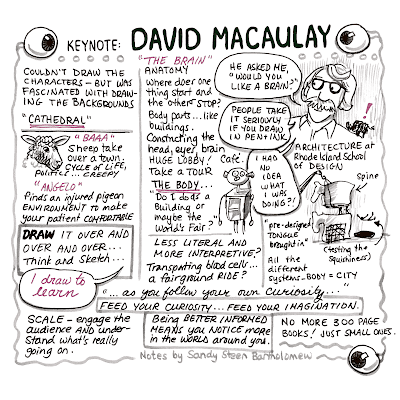 KEYNOTE: DAVID MACAULAY
COULDN'T DRAW THE
CHARACTERS - BUT WAS
FASCINATED WITH DRAW-
ING THE BACKGROUNDS
"CATHEDRAL"
"BAAA"
Sheep take
over a town.
Cycle of Life,
Politics... CREEPY
"ANGELO"
finds an injured pigeon
ENVIRONMENT to make
your patient COMFORTABLE
DRAW IT OVER AND
OVER AND OVER...
Think and Sketch...
I draw to
learn
SCALE - engage the
audience AND under-
stand what's really
going on.
"THE BRAIN"
ANATOMY
Where does one
thing start and
the other STOP?
Body parts... like
buildings.
Constructing the
head, eyes, brain
HUGE LOBBY!
Take a TOUR
THE BODY...
"Do I do as a
Building or
maybe the
World's Fair?"
Café
LESS LITERAL AND
MORE INTERPRETIVE?
Transporting blood cells...
a fairground RIDE?
HE ASKED ME,
"WOULD YOU
LIKE A BRAIN?"
PEOPLE TAKE
IT SERIOUSLY
IF YOU DRAW
IN PEN & INK
!
I HAD
NO
IDEA
WHAT
I WAS
DOING?!
ARCHITECTURE at
Rhode Island School
of DESIGN
Spine
"pre-designed
TONGUE
brought in"
(testing the
Squishiness)
All the
different
systems - BODY = CITY
"... as you follow your own Curiosity..."
FEED YOUR CURIOSITY... FEED YOUR IMAGINATION.
Being BETTER INFORMED
MEANS YOU NOTICE MORE
IN THE WORLD around you.
NO MORE 300 PAGE
BOOKS! JUST SMALL ONES.
Notes by Sandy Steen Bartholomew